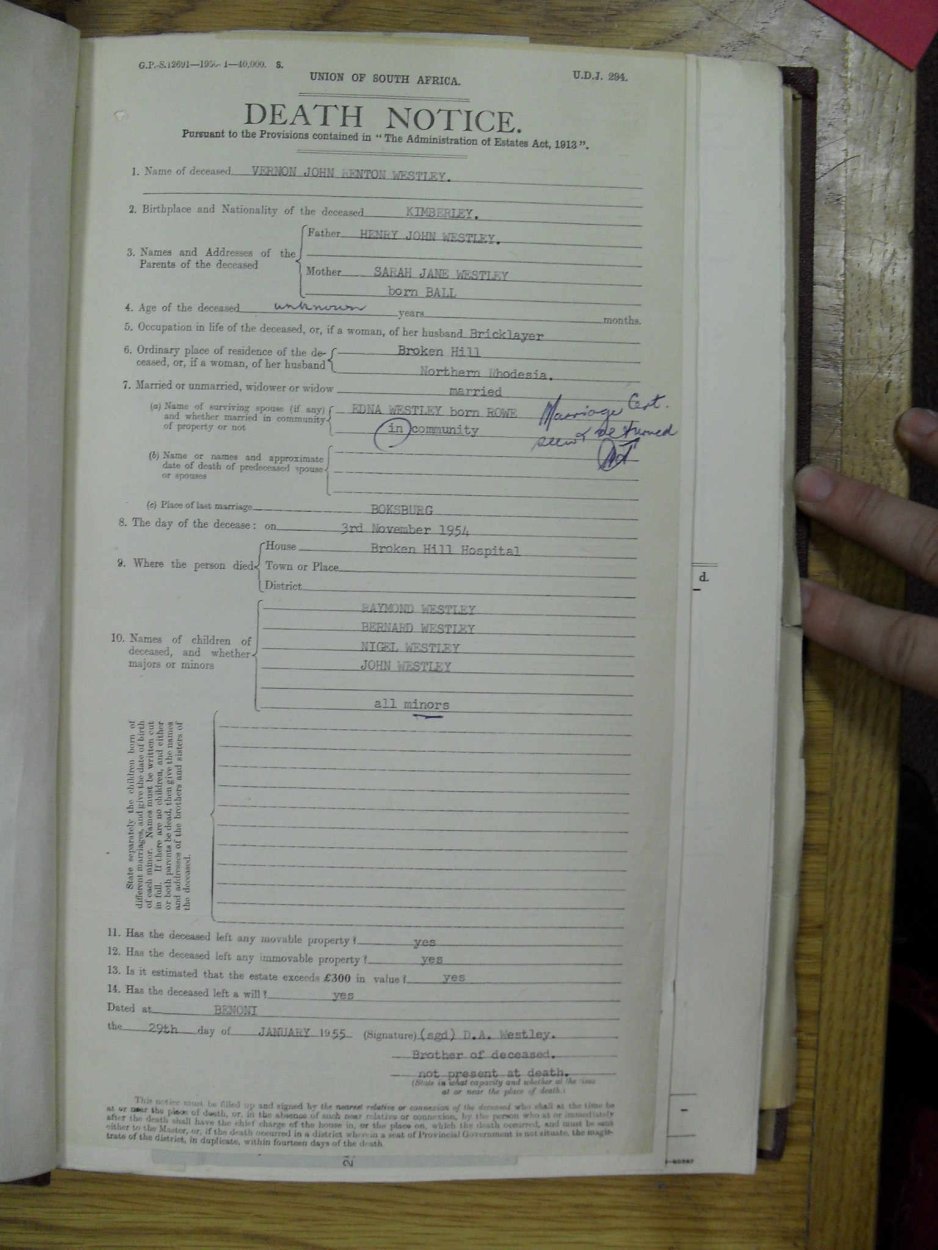 G.P.-S.12691—195 -1—40,000. S.
U.D.J. 294.
UNION OF SOUTH AFRICA.
DEATH NOTICE.
Pursuant to the Provisions contained in "The Administration of Estates Act, 1913".
1. Name of deceased VERNON JOHN RENTON WESTLEY.
2. Birthplace and Nationality of the deceased KIMBERLEY.
3. Names and Addresses of the Parents of the deceased
Father HENRY JOHN WESTLEY.
Mother SARAH JANE WESTLEY
born BALL
4. Age of the deceased unknown years months.
5. Occupation in life of the deceased, or, if a woman, of her husband Bricklayer
6. Ordinary place of residence of the de-
ceased, or, if a woman, of her husband
Broken Hill
Northern Rhodesia.
7. Married or unmarried, widower or widow married
(a) Name of surviving spouse (if any)
and whether married in community
of property or not
EDNA WESTLEY born ROWE
in community
Marriage Cert.
seen & returned
(b) Name or names and approximate
date of death of predeceased spouse
or spouses
(c) Place of last marriage BOKSBURG
8. The day of the decease: on 3rd November 1954
9. Where the person died
House Broken Hill Hospital
Town or Place
District
10. Names of children of
deceased, and whether
majors or minors
RAYMOND WESTLEY
BERNARD WESTLEY
NIGEL WESTLEY
JOHN WESTLEY
all minors
State separately the children born of
different marriages, and give the date of birth
of each minor. Names must be written out
in full. If there are no children, and either
or both parents be dead, then give the names
and addresses of the brothers and sisters of
the deceased.
11. Has the deceased left any movable property? yes
12. Has the deceased left any immovable property? yes
13. Is it estimated that the estate exceeds £300 in value? yes
14. Has the deceased left a will? yes
Dated at BENONI
the 29th day of JANUARY 1955 (Signature) (sgd) D.A. Westley.
Brother of deceased.
not present at death.
(State in what capacity and whether at the time
at or near the place of death.)
This notice must be filled up and signed by the nearest relative or connection of the deceased who shall at the time be
at or near the place of death, or, in the absence of such near relative or connection, by the person who at or immediately
after the death shall have the chief charge of the house in, or the place on, which the death occurred, and must be sent
either to the Master, or, if the death occurred in a district wherein a seat of Provincial Government is not situate, the magis-
trate of the district, in duplicate, within fourteen days of the death.
d.